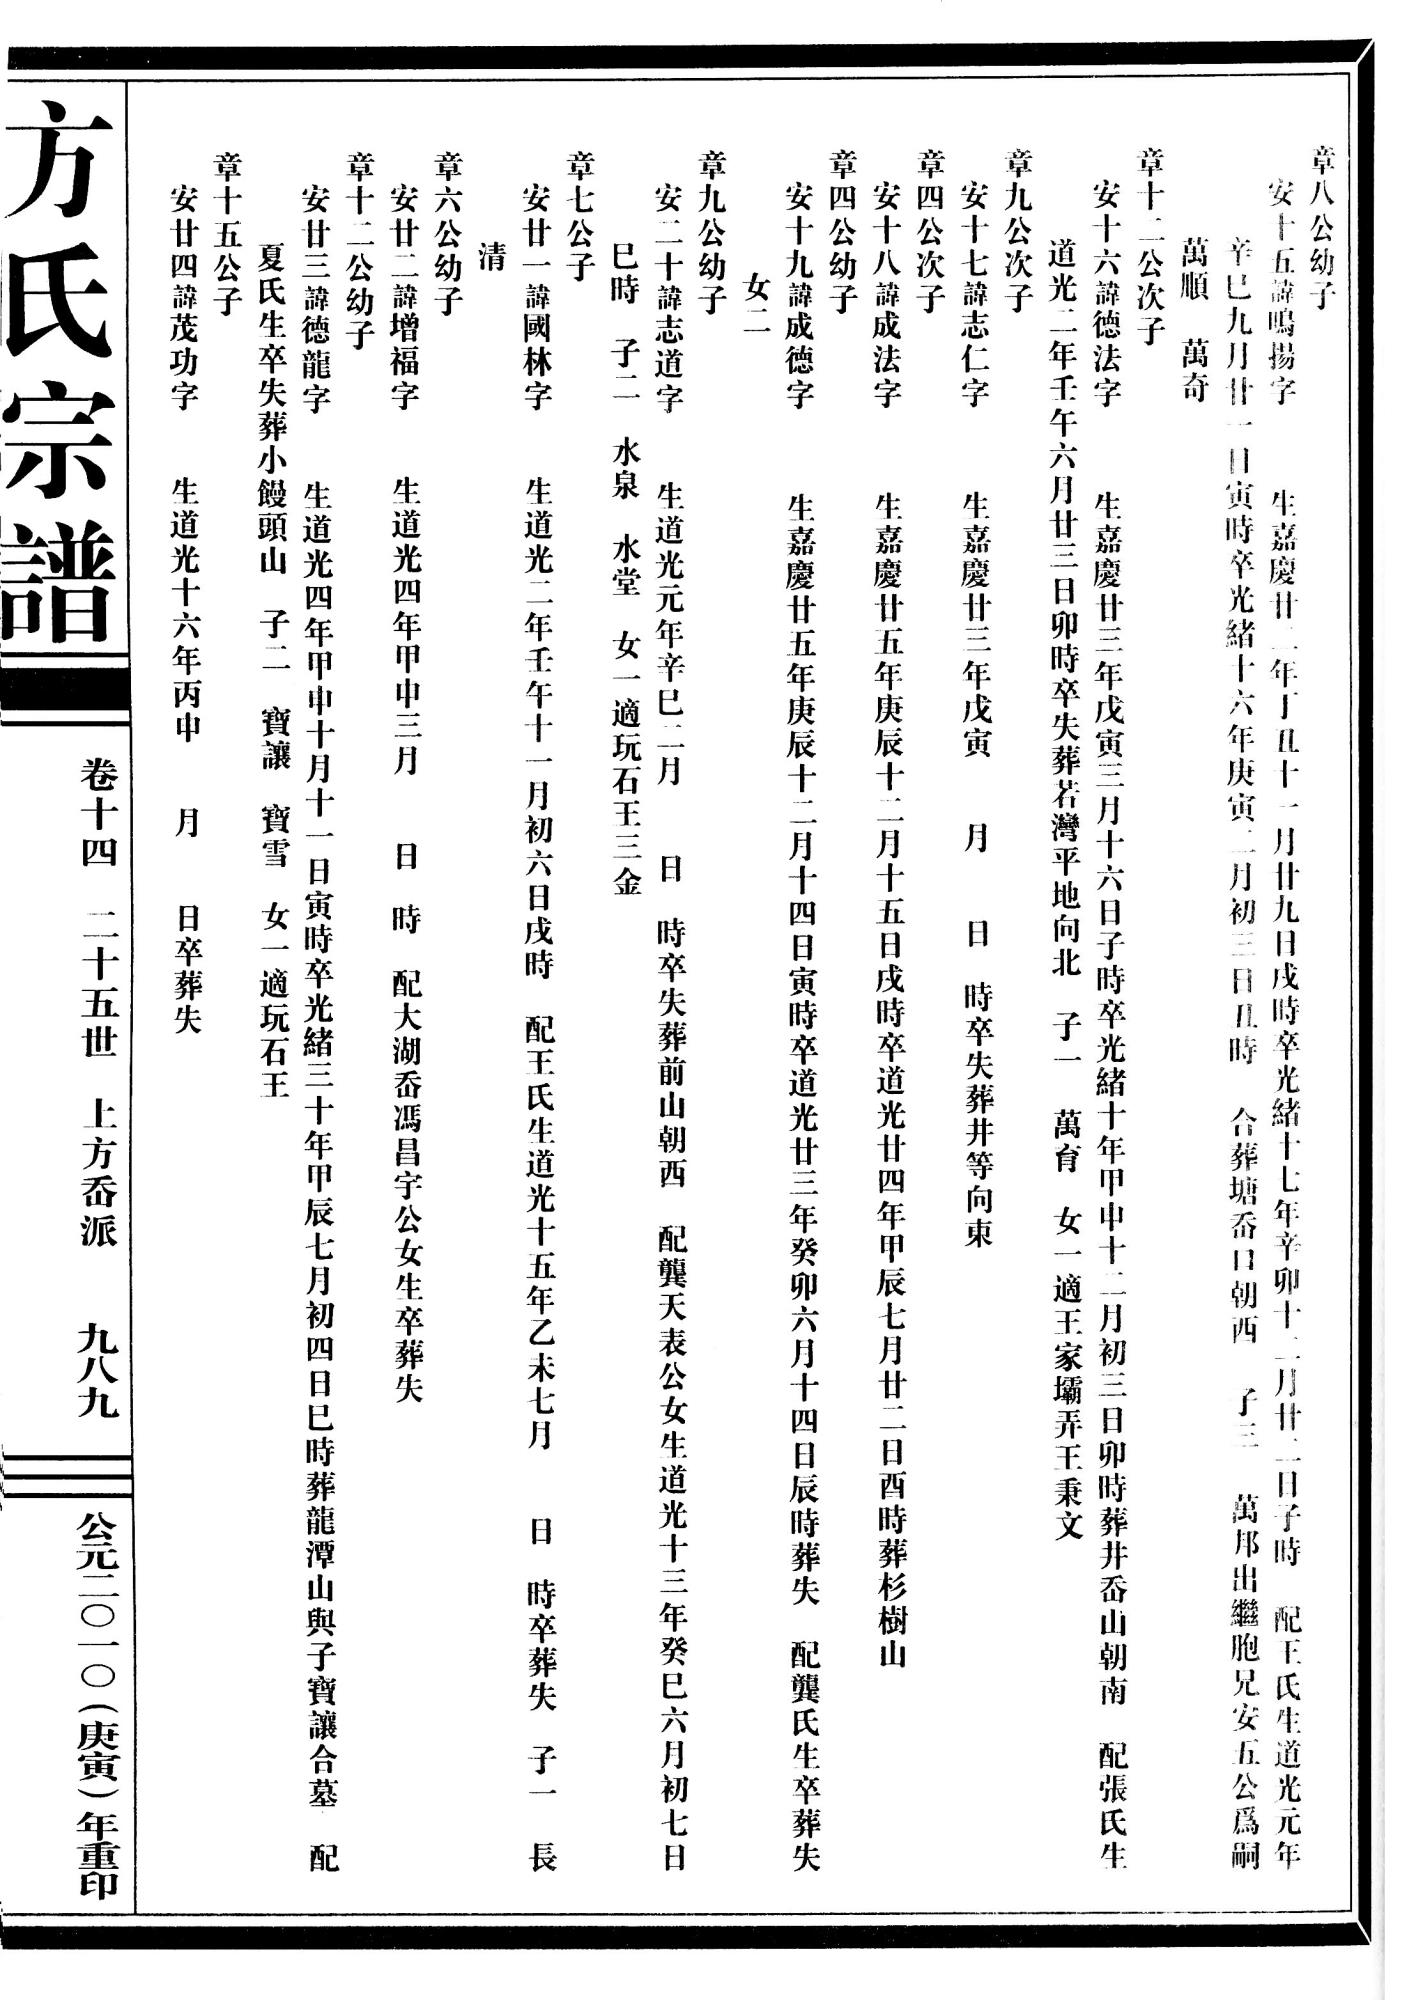 章八公幼子
安十五諱鳴揚字　生嘉慶廿二年丁丑十一月廿九日戌時卒光緒十七年辛卯十二月廿二日子時　配王氏生道光元年
辛巳九月廿一日寅時卒光緒十六年庚寅二月初三日丑時　合葬塘岙口朝西　子三　萬邦出繼胞兄安五公爲嗣
萬順　萬奇
章十二公次子
安十六諱德法字　生嘉慶廿三年戊寅三月十六日子時卒光緒十年甲申十二月初三日卯時葬井岙山朝南　配張氏生
道光二年壬午六月廿三日卯時卒失葬若灣平地向北　子一　萬育　女一適王家壩弄王秉文
章九公次子
安十七諱志仁字　生嘉慶廿三年戊寅　月　日　時卒失葬井等向東
章四公次子
安十八諱成法字　生嘉慶廿五年庚辰十二月十五日戌時卒道光廿四年甲辰七月廿二日酉時葬杉樹山
章四公幼子
安十九諱成德字　生嘉慶廿五年庚辰十二月十四日寅時卒道光廿三年癸卯六月十四日辰時葬失　配龔氏生卒葬失
女二
章九公幼子
安二十諱志道字　生道光元年辛巳二月　日　時卒失葬前山朝西　配龔天表公女生道光十三年癸巳六月初七日
巳時　子二　水泉　水堂　女一適玩石王三金
章七公子
安廿一諱國林字　生道光二年壬午十一月初六日戌時　配王氏生道光十五年乙未七月　日　時卒葬失　子一　長
清
章六公幼子
安廿二諱增福字　生道光四年甲申三月　日　時　配大湖岙馮昌宇公女生卒葬失
章十二公幼子
安廿三諱德龍字　生道光四年甲申十月十一日寅時卒光緒三十年甲辰七月初四日巳時葬龍潭山與子寶讓合墓　配
夏氏生卒失葬小饅頭山　子二　寶讓　寶雪　女一適玩石王
章十五公子
安廿四諱茂功字　生道光十六年丙申　月　日卒葬失
方氏宗譜
卷十四　二十五世　上方岙派　九八九
公元二〇一〇（庚寅）年重印